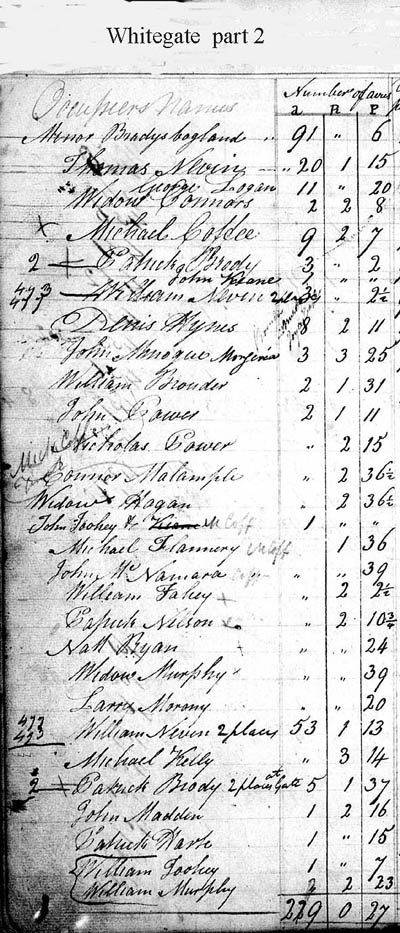 Whitegate part 2
Occupiers Names Number of acres
a R P
Minor Bradys bogland " 91 " 6
Thomas Nevin " 20 1 15
George Logan 11 " 20
Widow Connors 2 2 8
x Michael Coffee 9 2 7
2 Patrick Brody 3 " 2
John Keane
473
477 William Nevin 2 places 2½
Denis Hynes 8 2 11
John Minogue 3 3 25
William Brouder 2 1 31
John Power 2 1 11
Nicholas Power " 2 15
Connor Malample " 2 36½
Widow Hogan " 2 36½
John Toohey & 1 " "
Michael Flannery 1 36
John McNamara " " 39
William Fahey " 2 2½
Patrick Nilson " 2 10¾
Natt Ryan " " 24
Widow Murphy " " 39
Larry Morony " " 20
473
William Nevin 2 places 53 1 13
Michael Kelly " 3 14
2 Patrick Brody 2 places at Gate 5 1 37
John Madden 1 2 16
Patrick Hark 1 " 15
William Toohey 1 " 7
William Murphy 2 2 23
229 0 27